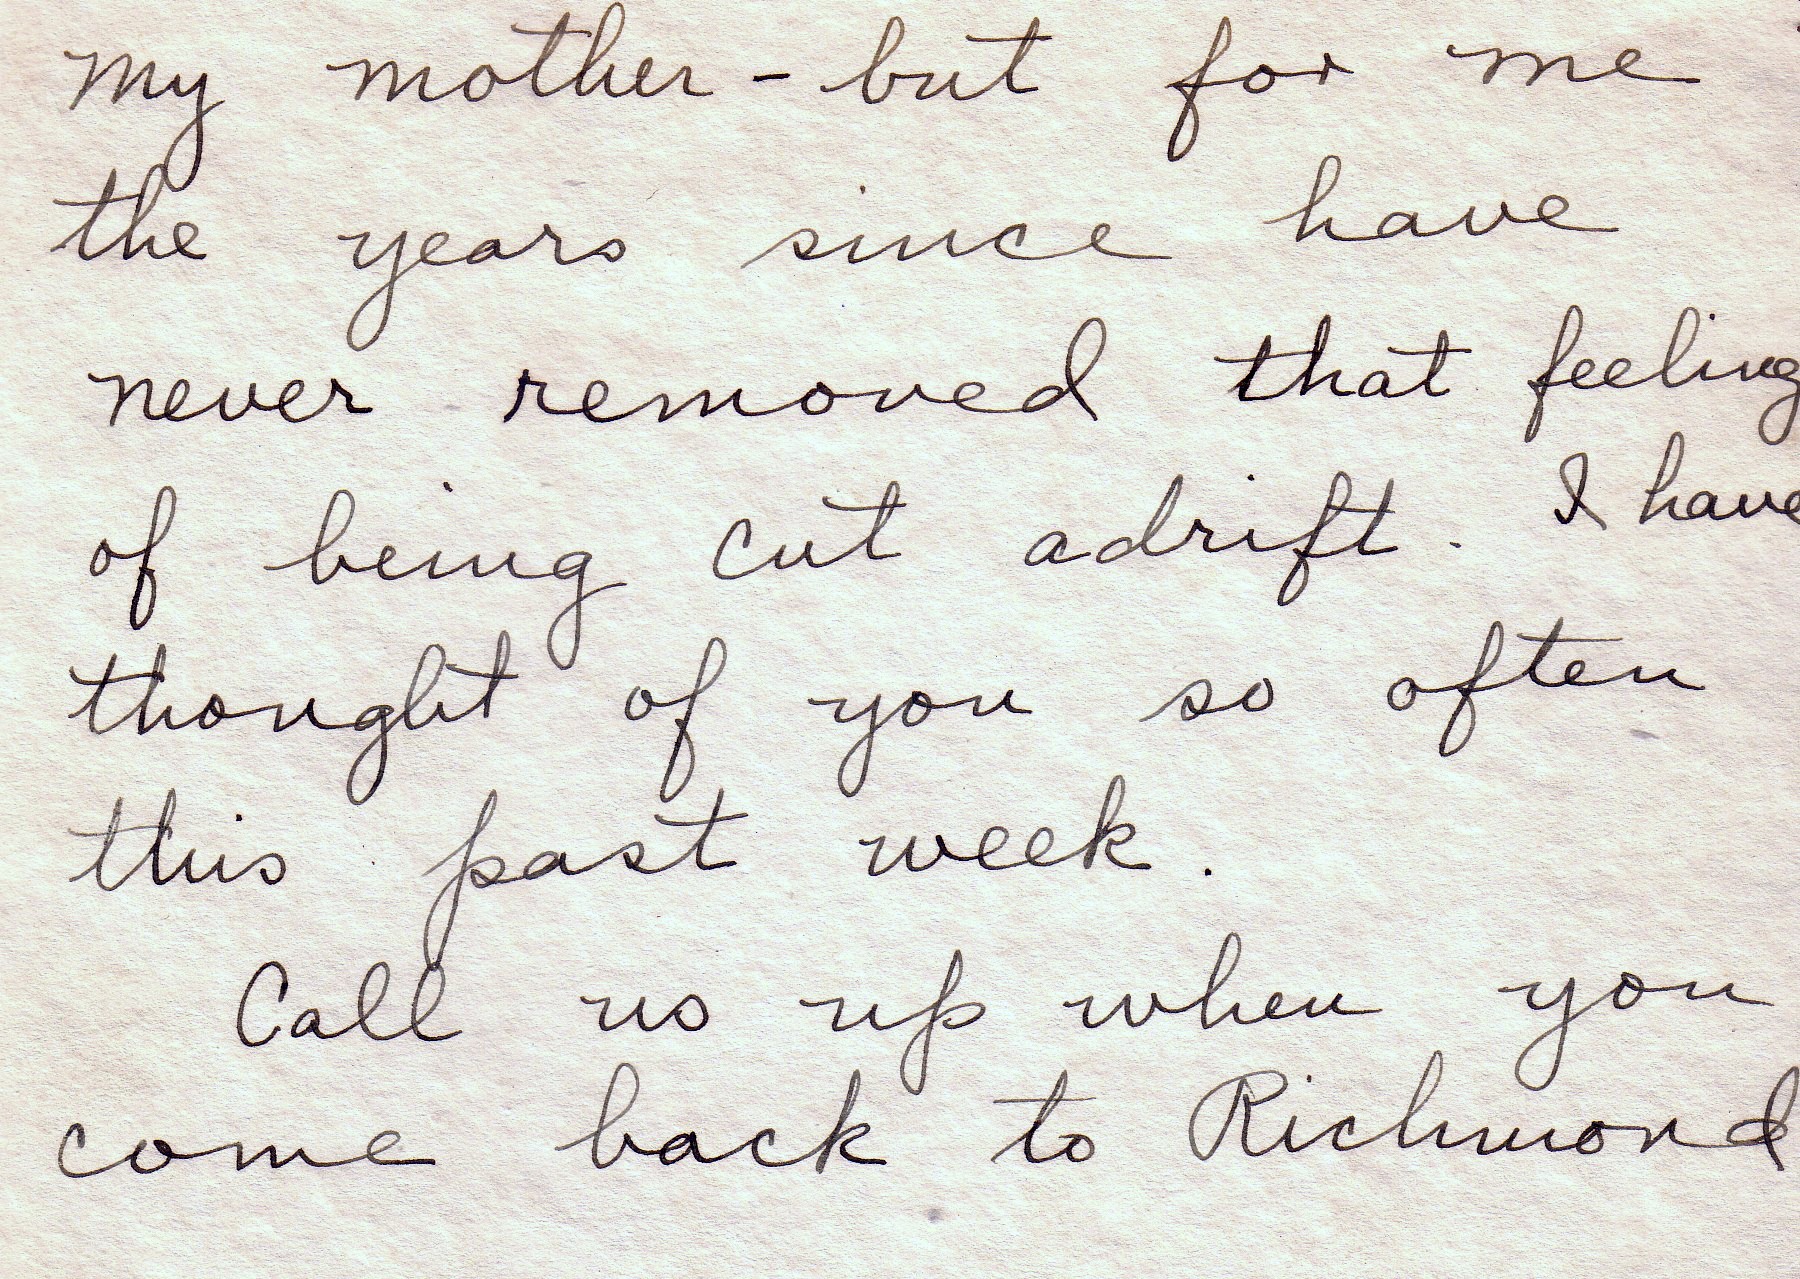 my mother - but for me
the years since have
never removed that feeling
of being cut adrift. I have
thought of you so often
this past week.
Call us up when you
come back to Richmond